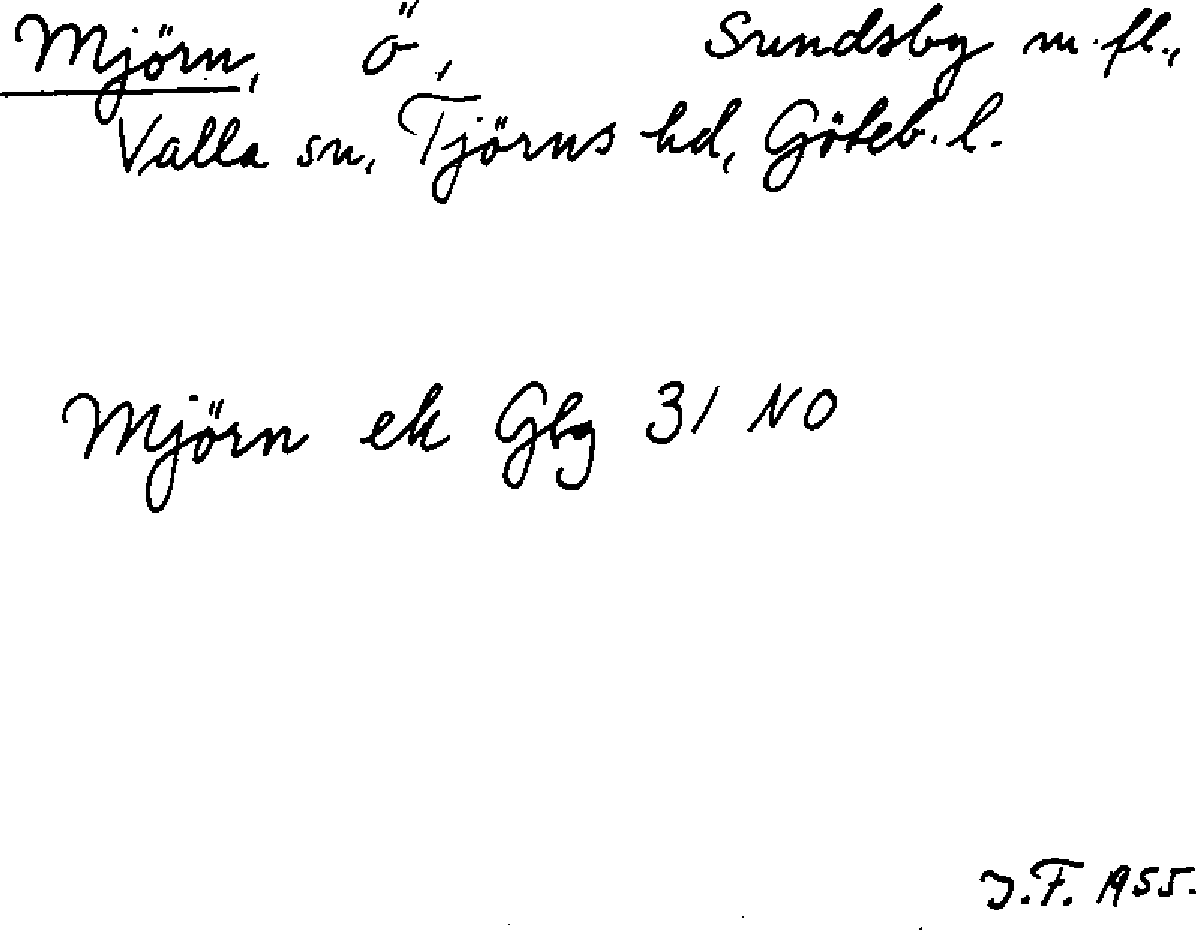 Mjörn, ö, Sundsby m. fl.,
Valla sn, Tjörns hd, Göteb. l.
Mjörn ek Gbg 31 NO
J.F. 1955.